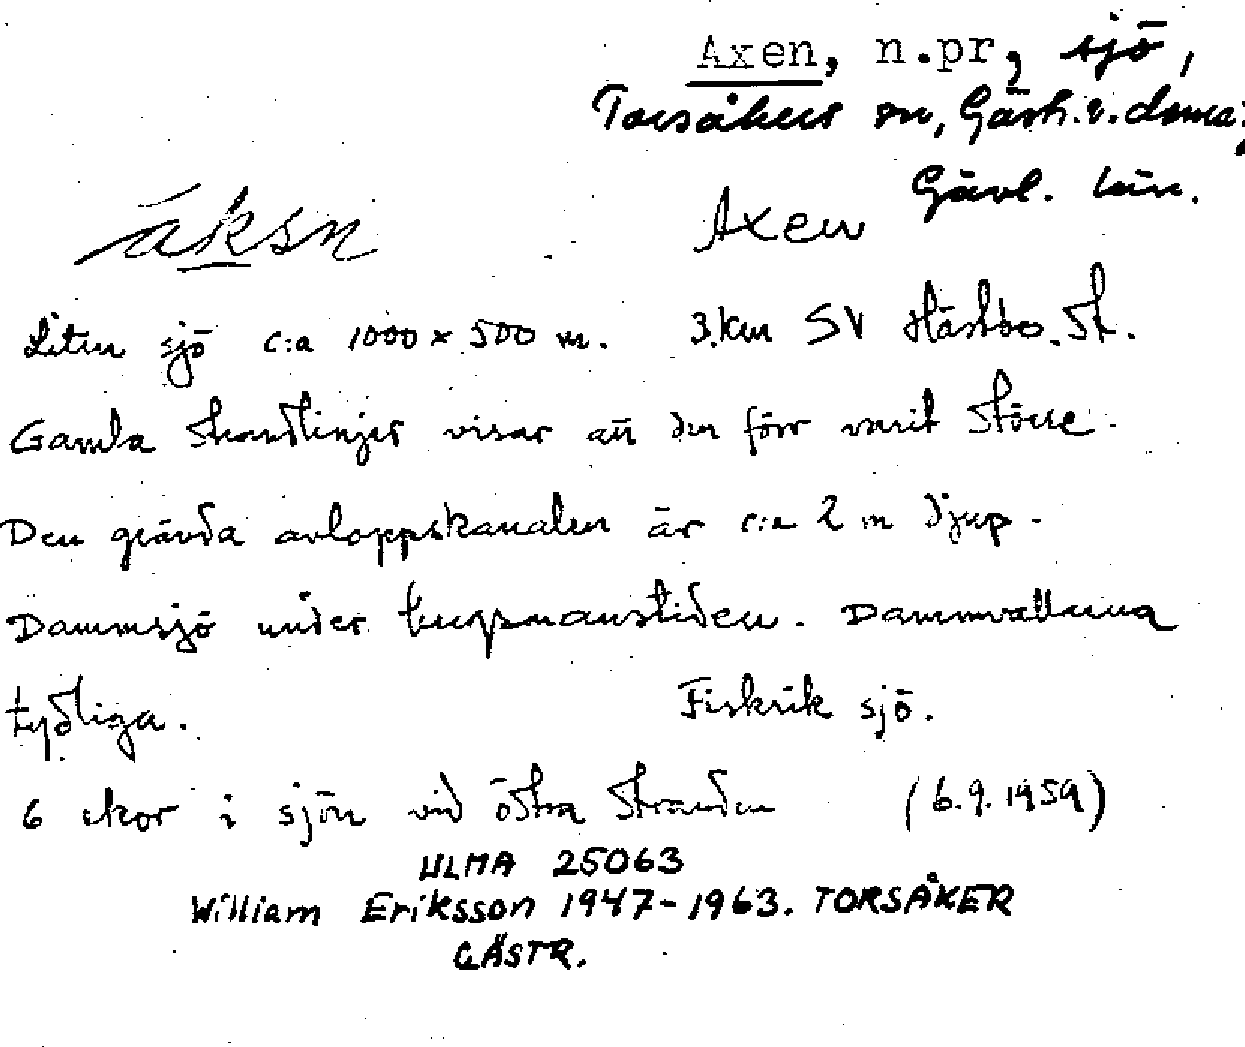 Axen, n.pr, sjö,
Torsåkers sn, Gästr.ö.doms;
Gävl. län.
áksn Axen
Liten sjö c:a 1000 x 500 m. 3 km SV Hästbo. St.
Gamla strandlinjer visar att den förr varit större.
Den grävda avloppskanalen är c:a 2 m djup.
Dammsjö under bergsmanstiden. Dammvallarna
tydliga. Fiskrik sjö.
6 ekor i sjön vid östra stranden (6.9.1959)
ULMA 25063
William Eriksson 1947-1963. TORSÅKER
GÄSTR.